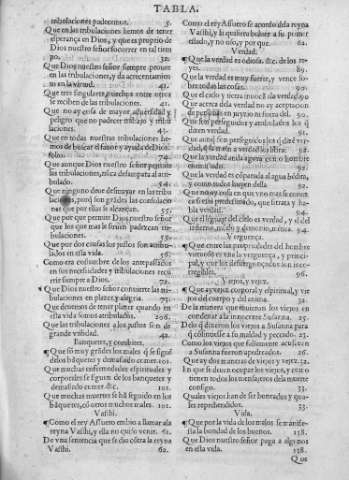 TABLA.
tribulaciones padecemos. 5.
Que en las tribulaciones hemos de tener
esperança en Dios, y que es proprio de
Dios nuestro señor socorrer en tal tiem
po. 32.
Que Dios nuestro señor siempre
en las tribulaciones, y da acrecentamien
to en la virtud. 41.
Que tres singulares
se reciben de las tribulaciones. 41.
Que no ay cosa de mayor aduersidad y
peligro que no padecer trabajos y tribu
laciones. 43.
Que en todas nuestras tribulaciones he
mos de buscar el fauor y ayuda de Dios
74.
Que aunque Dios nuestro señor permite
las tribulaciones, no desampara al atri
bulado. 54.
Que ninguno deue desmayar en las tribu
laciones, porq son grādes las consolacio
nes que por ellas se alcançan. 55.
Que por que permite Dios nuestro señor
que los que mas le siruen padezcan tri
bulaciones. 55.
Que por dos causas los justos son atribu-
lados en esta vida. 56.
Como era costumbre de los antepassados
en sus necessidades y tribulaciones recu
rrir siempre a Dios. 72.
Que Dios nuestro señor conuierte las tri-
bulaciones en plazer y alegria. 75.
Que deuemos de tener plazer quando en
esta vida somos atribulados. 206.
Que las tribulaciones a los justos son de
grande vtilidad. 42.
Banquetes, y combites.
Que son muy grādes los males q se siguē
delos bāquetes y demasiado comer. 101.
Que muchas enfermedades espirituales y
corporales se siguen de los banquetes y
demasiado comer &c. 101.
Que muchas muertes se hā seguido en los
bāquetes, cō otros muchos males. 101.
Vasthi.
Como el rey Assuero embio a llamar a la
reyna Vasthi, y ella no quiso venir. 61.
De vna sentencia que se dio cōtra la reyna
Vasthi. 62.
Como el rey Assuero se acordo dela reyna
Vasthi, y la quisiera boluer a su primer
estado, y no oso, y por que. 62.
Verdad.
Que la verdad es odiosa. &c. de los re-
yes. 89.
Que la verdad es muy fuerte, y vence so-
bre todas las cosas. 90.
Que el cielo y tierra inuocā la verdad. 90
Que acerca dela verdad no ay acceptacion
de personas ni juyzio fuera del. 90.
Que son perseguidos y aborrecidos los q
dizen verdad. 91.
Que aunq sean perseguidos los q dizē ver
dad, 91.
Que la verdad anda agora con el hombre
92.
Que la verdad es comparada al agua bēdita,
y como todos huyen della. 92.
Que no ay cosa en que vno mas se conoz
ca si es predestinado, que si trata y ha-
bla verdad. 94.
Que el lēguaje del cielo es verdad, y el del
infierno, 94.
Verguença.
Que entre las propriedades del hombre
virtuoso es vna la verguença, y princi-
pal, y que los desuergonçados son inco-
rregibles. 96.
Viejos, y vejez.
Que ay vejez corporal y espiritual, y vie
jos del cuerpo y del anima. 32.
De la manera que tuuieron los viejos en
condenar a la innocente Susanna. 25.
Delo q dixeron los viejos a Susanna para
q consintiesse a su maldad y peccado. 23.
Como los viejos que falsamente acusaron
a Susanna fueron apedreados. 26.
Que ay dos maneras de viejos y vejez. 32.
En que se deuen ocupar los viejos, y que
tienen todos los mensajeros dela muerte
consigo. 33.
Quales viejos hā de ser honrados y qua-
les reprehendidos. 33.
Vida.
Que por la vida de los malos se manifie-
sta la bondad de los buenos. 158.
Que Dios nuestro señor paga a algunos
en esta vida. 158.
Que